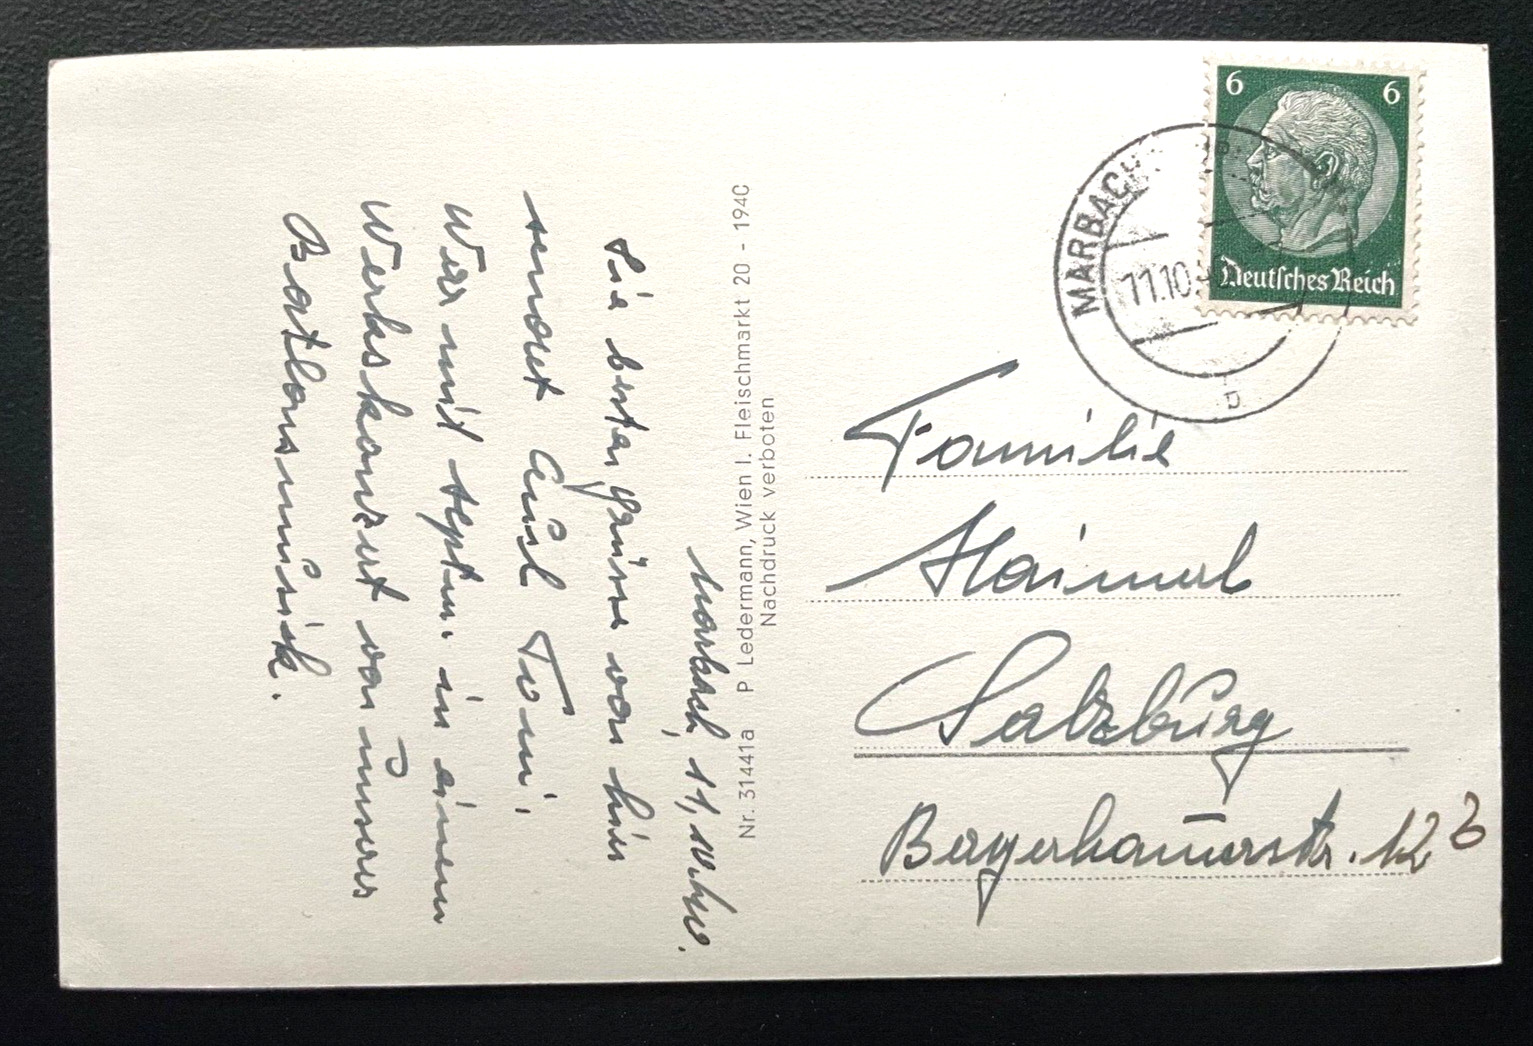 Marbach, 11.10.40.
Die besten Grüsse von hier
sendet Euch Toni.
War mit Septm. in einem
Werkskonzert von unserer
Nr. 31441a P. Ledermann, Wien I. Fleischmarkt 20 - 1940
Nachdruck verboten
6 6
Deutsches Reich
MARBACH
11.10.
b
Familie
Haimerl
Salzburg
Bergerhammerstr. 12